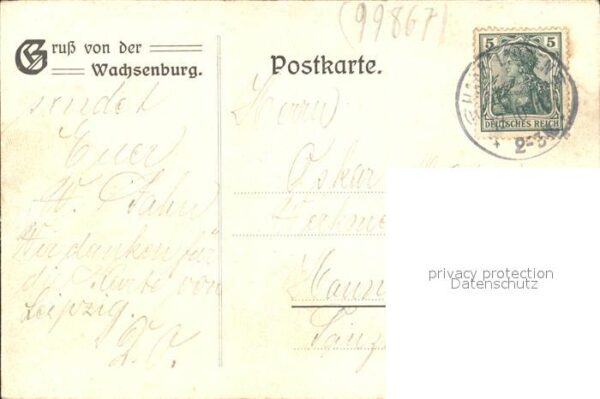 (99867)
Gruß von der
Wachsenburg.
Postkarte.
5 5
DEUTSCHES REICH
2-3
sendet
Euer
W. Jahn
Wir danken für
die Karte von
Leipzig.
D. O.
Herrn
Oskar
privacy protection
Datenschutz